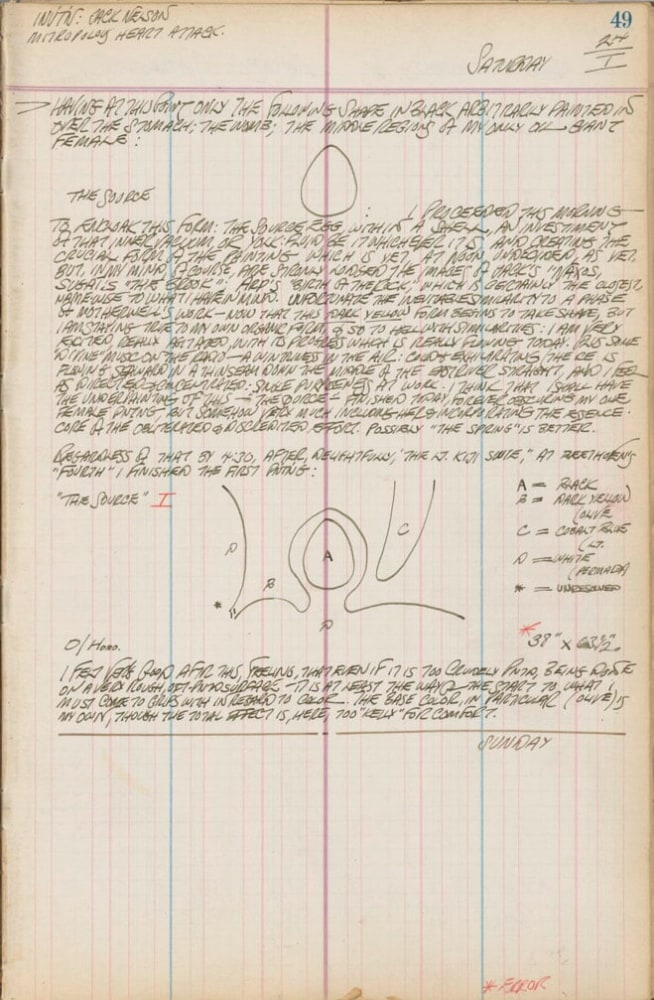 INVTN: JACK NELSON
METROPOLIS HEART ATTACK.
49
24
I
SATURDAY
HAVING AT THIS POINT ONLY THE FOLLOWING SHAPE IN BLACK ARBITRARILY PAINTED IN
OVER THE STOMACH; THE WOMB; THE MIDDLE REGIONS OF MY ONLY OIL GIANT
FEMALE:
THE SOURCE
: I PROCEEDED THIS MORNING
TO ENCLOAK THIS FORM: THE SOURCE EGG, WITHIN A SHELL, AN INVESTMENT
OF THAT INNER VACUUM, OR YOLK FLUID BE IT WHICHEVER IT IS AND CREATING THE
CRUCIAL FORM OF THE PAINTING WHICH IS YET, AT NOON, UNDECIDED, AS YET,
BUT, IN MY MIND, OF COURSE, ARE STRONGLY LODGED THE IMAGES OF JACK'S
"THE BROOK": ARP'S "BIRTH OF THE ROCK," WHICH IS CERTAINLY THE CLOSEST,
NAMEWISE TO WHAT I HAVE IN MIND. UNFORTUNATE THE INEVITABLE SIMILARITY TO A PHASE
OF MOTHERWELL'S WORK — NOW THAT THIS DARK YELLOW FORM BEGINS TO TAKE SHAPE, BUT
I AM STAYING TRUE TO MY OWN ORGANIC FORM, & SO TO HELL WITH SIMILARITIES: I AM VERY
EXCITED, REALLY AGITATED, WITH ITS PROGRESS WHICH IS REALLY FLOWING TODAY. PLUS SOME
DIVINE MUSIC ON THE RADIO — A WINTRINESS IN THE AIR: COLD & EXHILARATING, THE ICE IS
FLOWING SEAWARD IN A THIN SEAM DOWN THE MIDDLE OF THE EAST RIVER STRAIGHT, AND I FEEL
AS DIRECTED & CONCENTRATED: SINGLE PURPOSENESS AT WORK. I THINK THAT I SHALL HAVE
THE UNDERPAINTING OF THIS — "THE SOURCE" — FINISHED TODAY, FOREVER OBSCURING MY ONE
FEMALE PNTNG, BUT SOMEHOW VERY MUCH INCLUDING HER & INCORPORATING THE ESSENCE:
CORE OF THE OBLITERATED & DISCREDITED EFFORT. POSSIBLY "THE SPRING" IS BETTER.
REGARDLESS OF THAT BY 4:30, AFTER, DELIGHTFULLY, "THE LT. KIJI SUITE," AT BEETHOVENS
"FOURTH" I FINISHED THE FIRST PNTNG:
"THE SOURCE" I
A = BLACK
B = DARK YELLOW
(OLIVE
C = COBALT BLUE
(LT.
D = WHITE
(PERMALBA)
* = UNRESOLVED
D
B
A
C
* B
D
*38" X 63½".
O/
I FELT VERY GOOD AFTR THIS, FEELING, THAT EVEN IF IT IS TOO CRUDELY PNTD, BEING DONE
ON A VERY ROUGH, OFT-PNTD SURFACE — IT IS AT LEAST THE WAY & THE START TO, WHAT I
MUST COME TO GRIPS WITH IN REGARD TO COLOR. THE BASE COLOR, IN PARTICULAR (OLIVE) IS
MY OWN, THOUGH THE TOTAL EFFECT IS, HERE, TOO "KELLY" FOR COMFORT.
SUNDAY
* ERROR